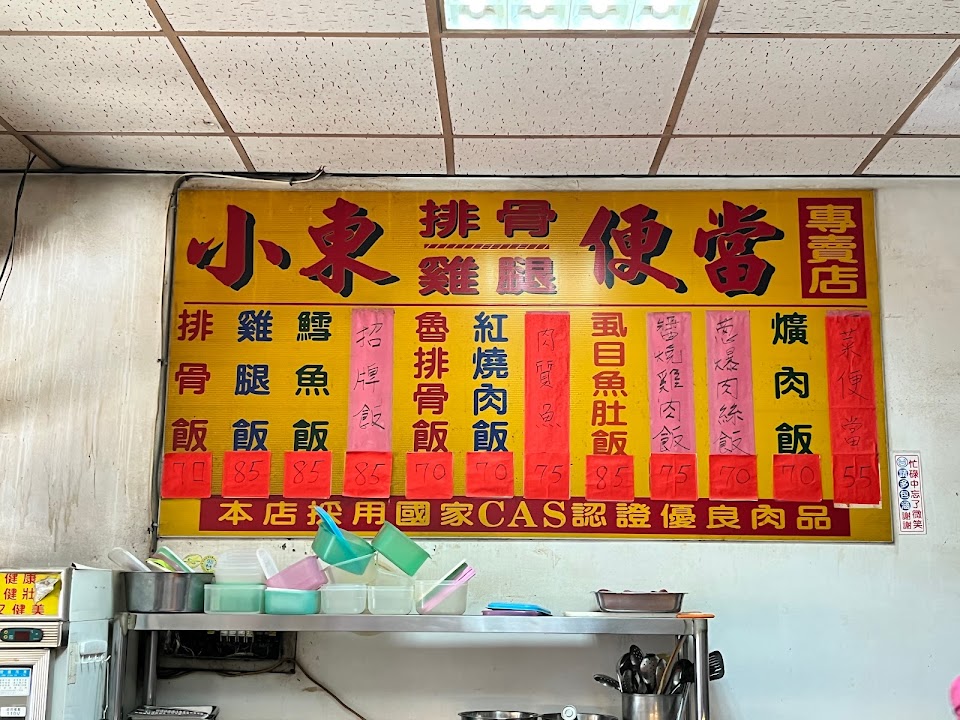 小東
排骨
雞腿
便當
專賣店
排骨飯
70
雞腿飯
85
鱈魚飯
85
招牌飯
85
魯排骨飯
70
紅燒肉飯
70
肉質魚
75
虱目魚肚飯
85
醬燒雞肉飯
75
蔥爆肉絲飯
70
爌肉飯
70
菜便當
55
本店採用國家CAS認證優良肉品
忙碌中忘了微笑
請多包涵謝謝
健康
健壯
又健美